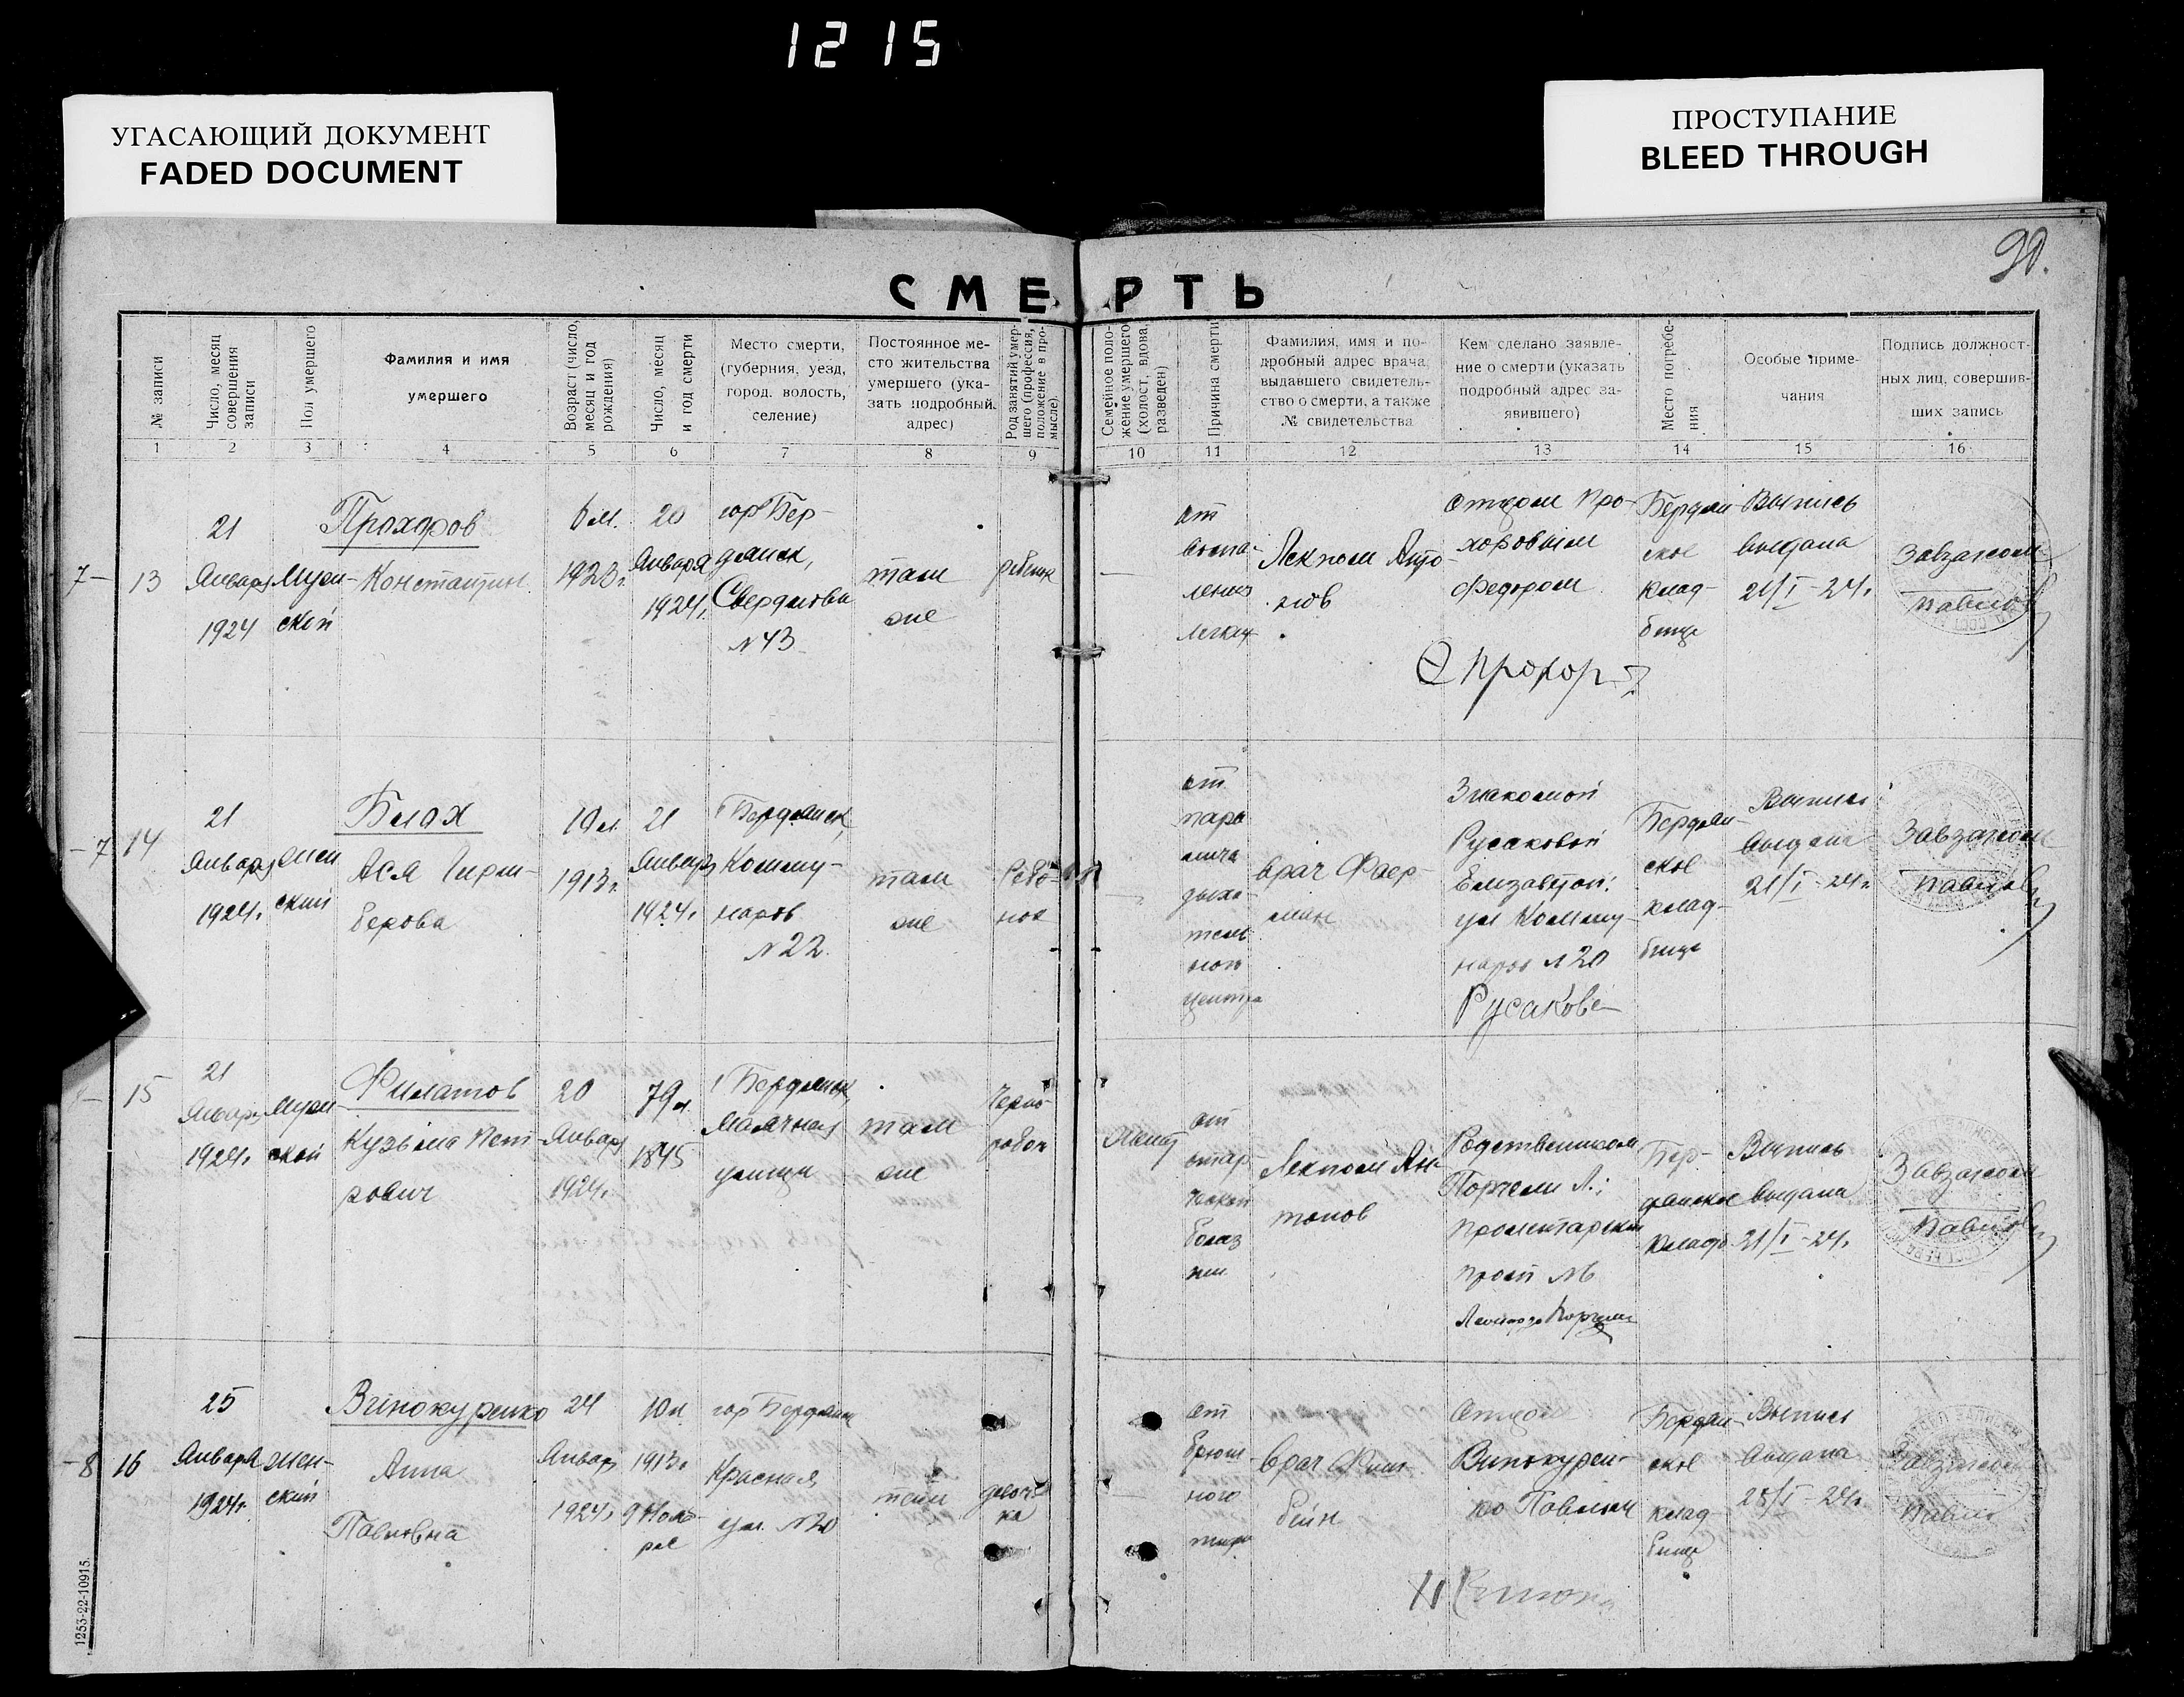 1215
УГАСАЮЩИЙ ДОКУМЕНТ
FADED DOCUMENT
ПРОСТУПАНИЕ
BLEED THROUGH
90.
СМЕРТЬ
№ записи
Число, месяц совершения записи
Пол умершего
Фамилия и имя
умершего
Возраст (число, месяц и год рождения)
Число, месяц и год смерти
Место смерти,
(губерния, уезд,
город, волость,
селение)
Постоянное ме-
сто жительства
умершего (ука-
зать подробный
адрес)
Род занятий умер-
шего (профессия,
положение в про-
мысле).
Семейное поло-
жение умершего
(холост, вдова,
разведен)
Причина смерти
Фамилия, имя и по-
дробный адрес врача,
выдавшего свидетель-
ство о смерти, а также
№ свидетельства
Кем сделано заявле-
ние о смерти (указать
подробный адрес за-
явившего)
Место погребе-
ния
Особые приме-
чания
Подпись должност-
ных лиц, совершив-
ших запись
1 2 3 4 5 6 7 8 9 10 11 12 13 14 15 16
7-
13
21
Января
1924
Муж-
ской
Прохоров
Константин
6 м.
1923 г.
20
Января
1924 г.
гор Бер-
дянск,
Свердлова
№ 43
там
же
ребенок
от
воспа-
ления
легких
Лекпом Анто-
нов
Отцом Про-
хоровым
Федором
Бердян-
ское
клад-
бище
Выпись
выдана
21/I-24 г.
Завзагсом
Павлов
-7
14
21
Января
1924 г.
жен
ский
Блох
Ася
берова
10 л.
1913 г.
21
Января
1924 г.
г Бердянск,
Комму-
наров
№ 22.
там
же
от
пара
лича
дыха
тель
ного
центра
врач Фаер-
ман
Знакомой
Русаковой
Елизаветой:
ул Комму-
наров № 20
Бердян-
ское
клад-
бище
Выпись
выдана
21/I-24 г.
Завзагсом
Павлов
15
21
Января
1924 г.
муж
ской
Филатов
Кузьма Пет-
рович
20
Января
1924 г.
79 л.
1845
г Бердянск,
Маячная
улица
там
же
Черно-
рабоч
от
стар
ческой
болез
ни
Лекпом Ан-
тонов
Родственником
Бер-
дянское
кладб
Выпись
выдана
21/I-24 г.
Завзагсом
Павлов
-8
16
25
Января
1924 г.
жен-
ский
Винокуренко
Анна
Павловна
24
Января
1924 г.
10 л.
1913 г.
9 Нояб-
ря
гор Бердянск
Красная
ул. № 20
там
девоч-
ка
от
брюш
ного
тифа
врач
Отцом
Винокурен-
ко Павлом
Бердян-
ское
клад-
бище
Выпись
выдана
25/I-24 г.
Завзагсом
Павлов
1253-22-10915.